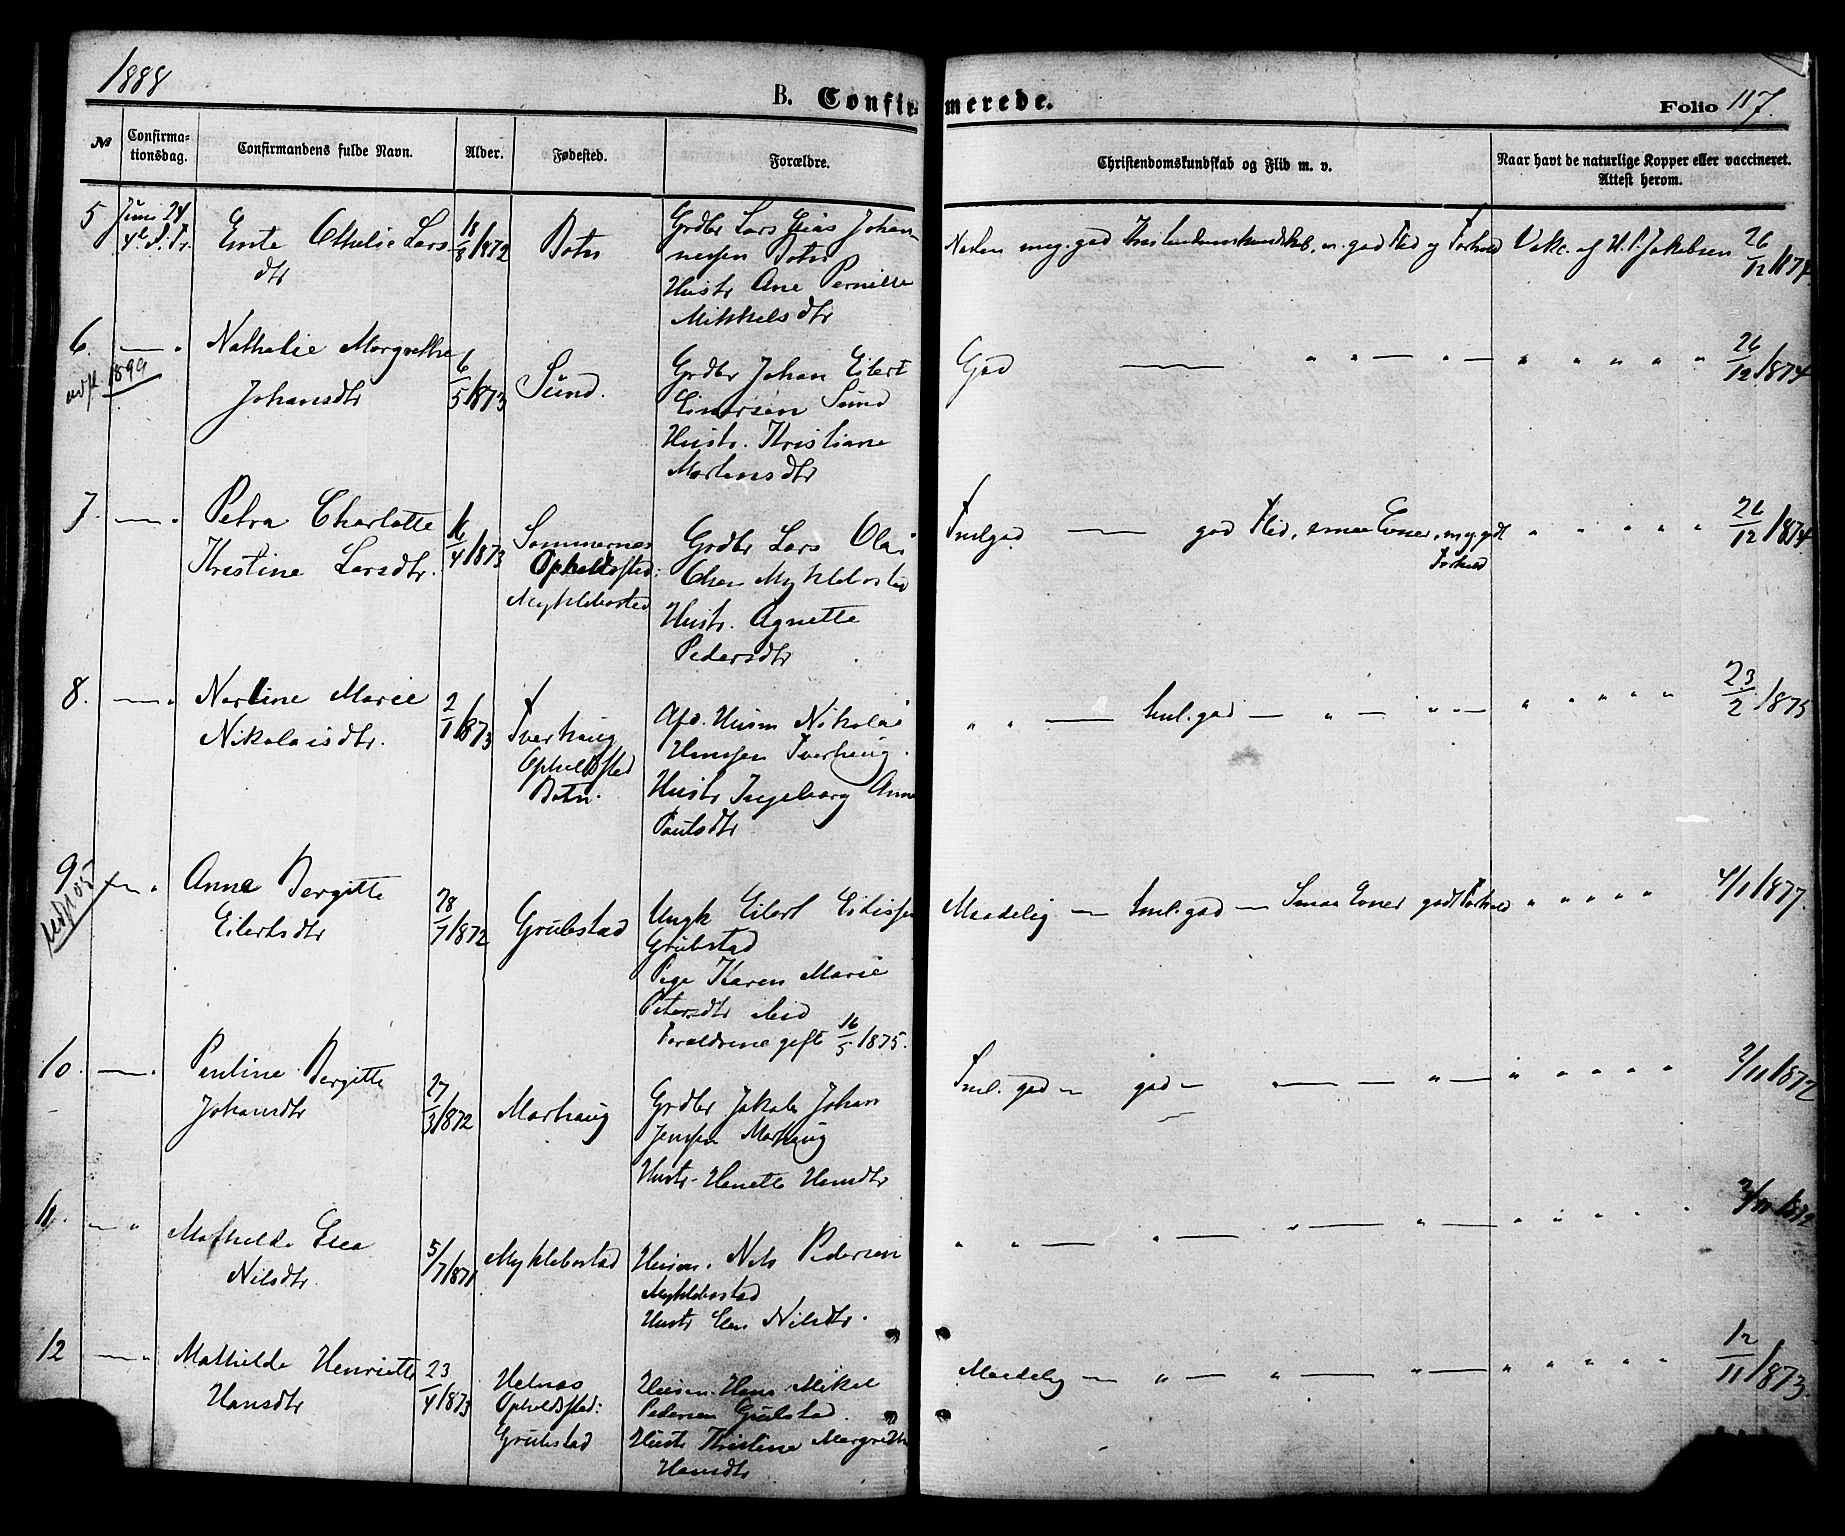 1888
B. Confirmerede.
Folio 117.
No
Confirmationsdag.
Confirmandens fulde Navn.
Alder.
Fødested.
Forældre.
Christendomskundskab og Flid m. v.
Naar havt de naturlige Kopper eller vaccineret. Attest herom.
5 Juni 24 4de S. Tr.
Ente Othelie Larsdtr
18/8 1872
Botn
Grdbr Lars Elias Johannessen Botn
Hustr Ane Pernille
Mikkelsdtr
Næsten meg. god Kristendomskundskab, m. god Flid og Forhold
Vakc. af H. P. Jakobsen 26/12 1874.
6. — "
1899
Nathalie Margrethe
Johansdtr
6/5 1873
Sund.
Grdbr Johan Eilert
Einarsen Sund
Hustr. Kristiane
Mortensdtr
God — " " — " — " " " " " 26/12 1874
7. — "
Petra Charlotte
Kristine Larsdtr.
16/4 1873
Sommernes
Opholdssted:
Myklebostad
Grdbr Lars Olai
Olsen Myklebostad
Hustr. Agnette
Pedersdtr
Tmlgod — god Flid, smaa Evner, meg. godt Forhold " " " " " 26/12 1874
8. — "
Nartine Marie
Nikolaisdtr.
2/1 1873
Tverhaug
Opholdssted
Botn.
Afd. Husm Nikolai
Hansen Tverhaug.
Hustr Ingeborg Anna
Paulsdtr
" " — tml. god — " — " " — " " " " " 23/2 1875
9. — "
Anne Bergitte
Eilertsdtr
28/7 1872
Grubstad
Ungk Eilert
Grubstad
Pige Karen Marie
Petersdtr ibid
Forældrene gift 16/5 1875.
Maadelig — tml. god — Smaa Evner godt Forhold " " " " " 4/1 1877.
10. — "
Pauline Bergitte
Johansdtr
27/3 1872
Marhaug
Grdbr Jakob Johan
Jensen Marhaug
Hustr. Hanette Hansdtr
Tml. god — god — " — " — " " " " " 2/11 1872
11. — "
Mathilde Elea
Nilsdtr
5/7 1871
Myklebostad
Husm. Nils Pedersen
Myklebostad
Hustr Elen Nilsdtr.
" " — " — " — " — " " " " " 2/11 1872
12 — "
Mathilde Henriette
Hansdtr
23/4 1873
Helnes
Opholdssted:
Grubstad
Husm. Hans Mikal
Pedersen Grubstad.
Hustr Kristine Margrethe
Hansdtr
Maadelig — " — " — " — " " " " " 12/11 1873.